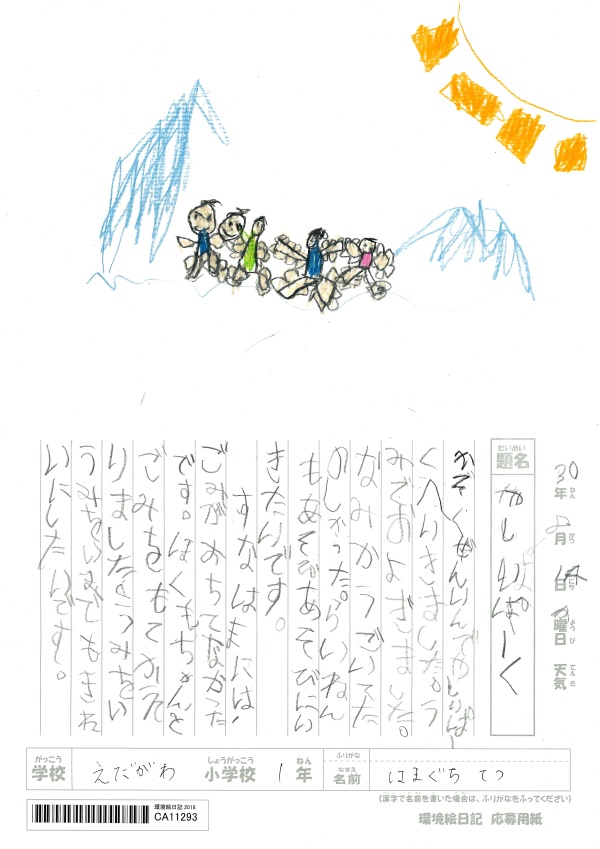 30年 8月 日 曜日 天気
ねん がつ にち ようび てんき
だいめい
題名 かしわぱーく
かぞくぜんいんでかしわぱー
くへいきました。う
みでおよぎました。
なみがうごいてた
のしかった。らいねん
もあそびあそびにい
きたいです。
すなはまには、
ごみがおちてなかった
です。ぼくもちゃんと
ごみをもてかえ
りました。うみをい
うみをいまでもきれ
いにしたいです。
がっこう しょうがっこう ねん ふりがな
学校 えだがわ 小学校 1年 なまえ 名前 はまぐち てつ
(漢字で名前を書いた場合は、ふりがなをふってください)
環境絵日記 2018
CA11293
環境絵日記 応募用紙